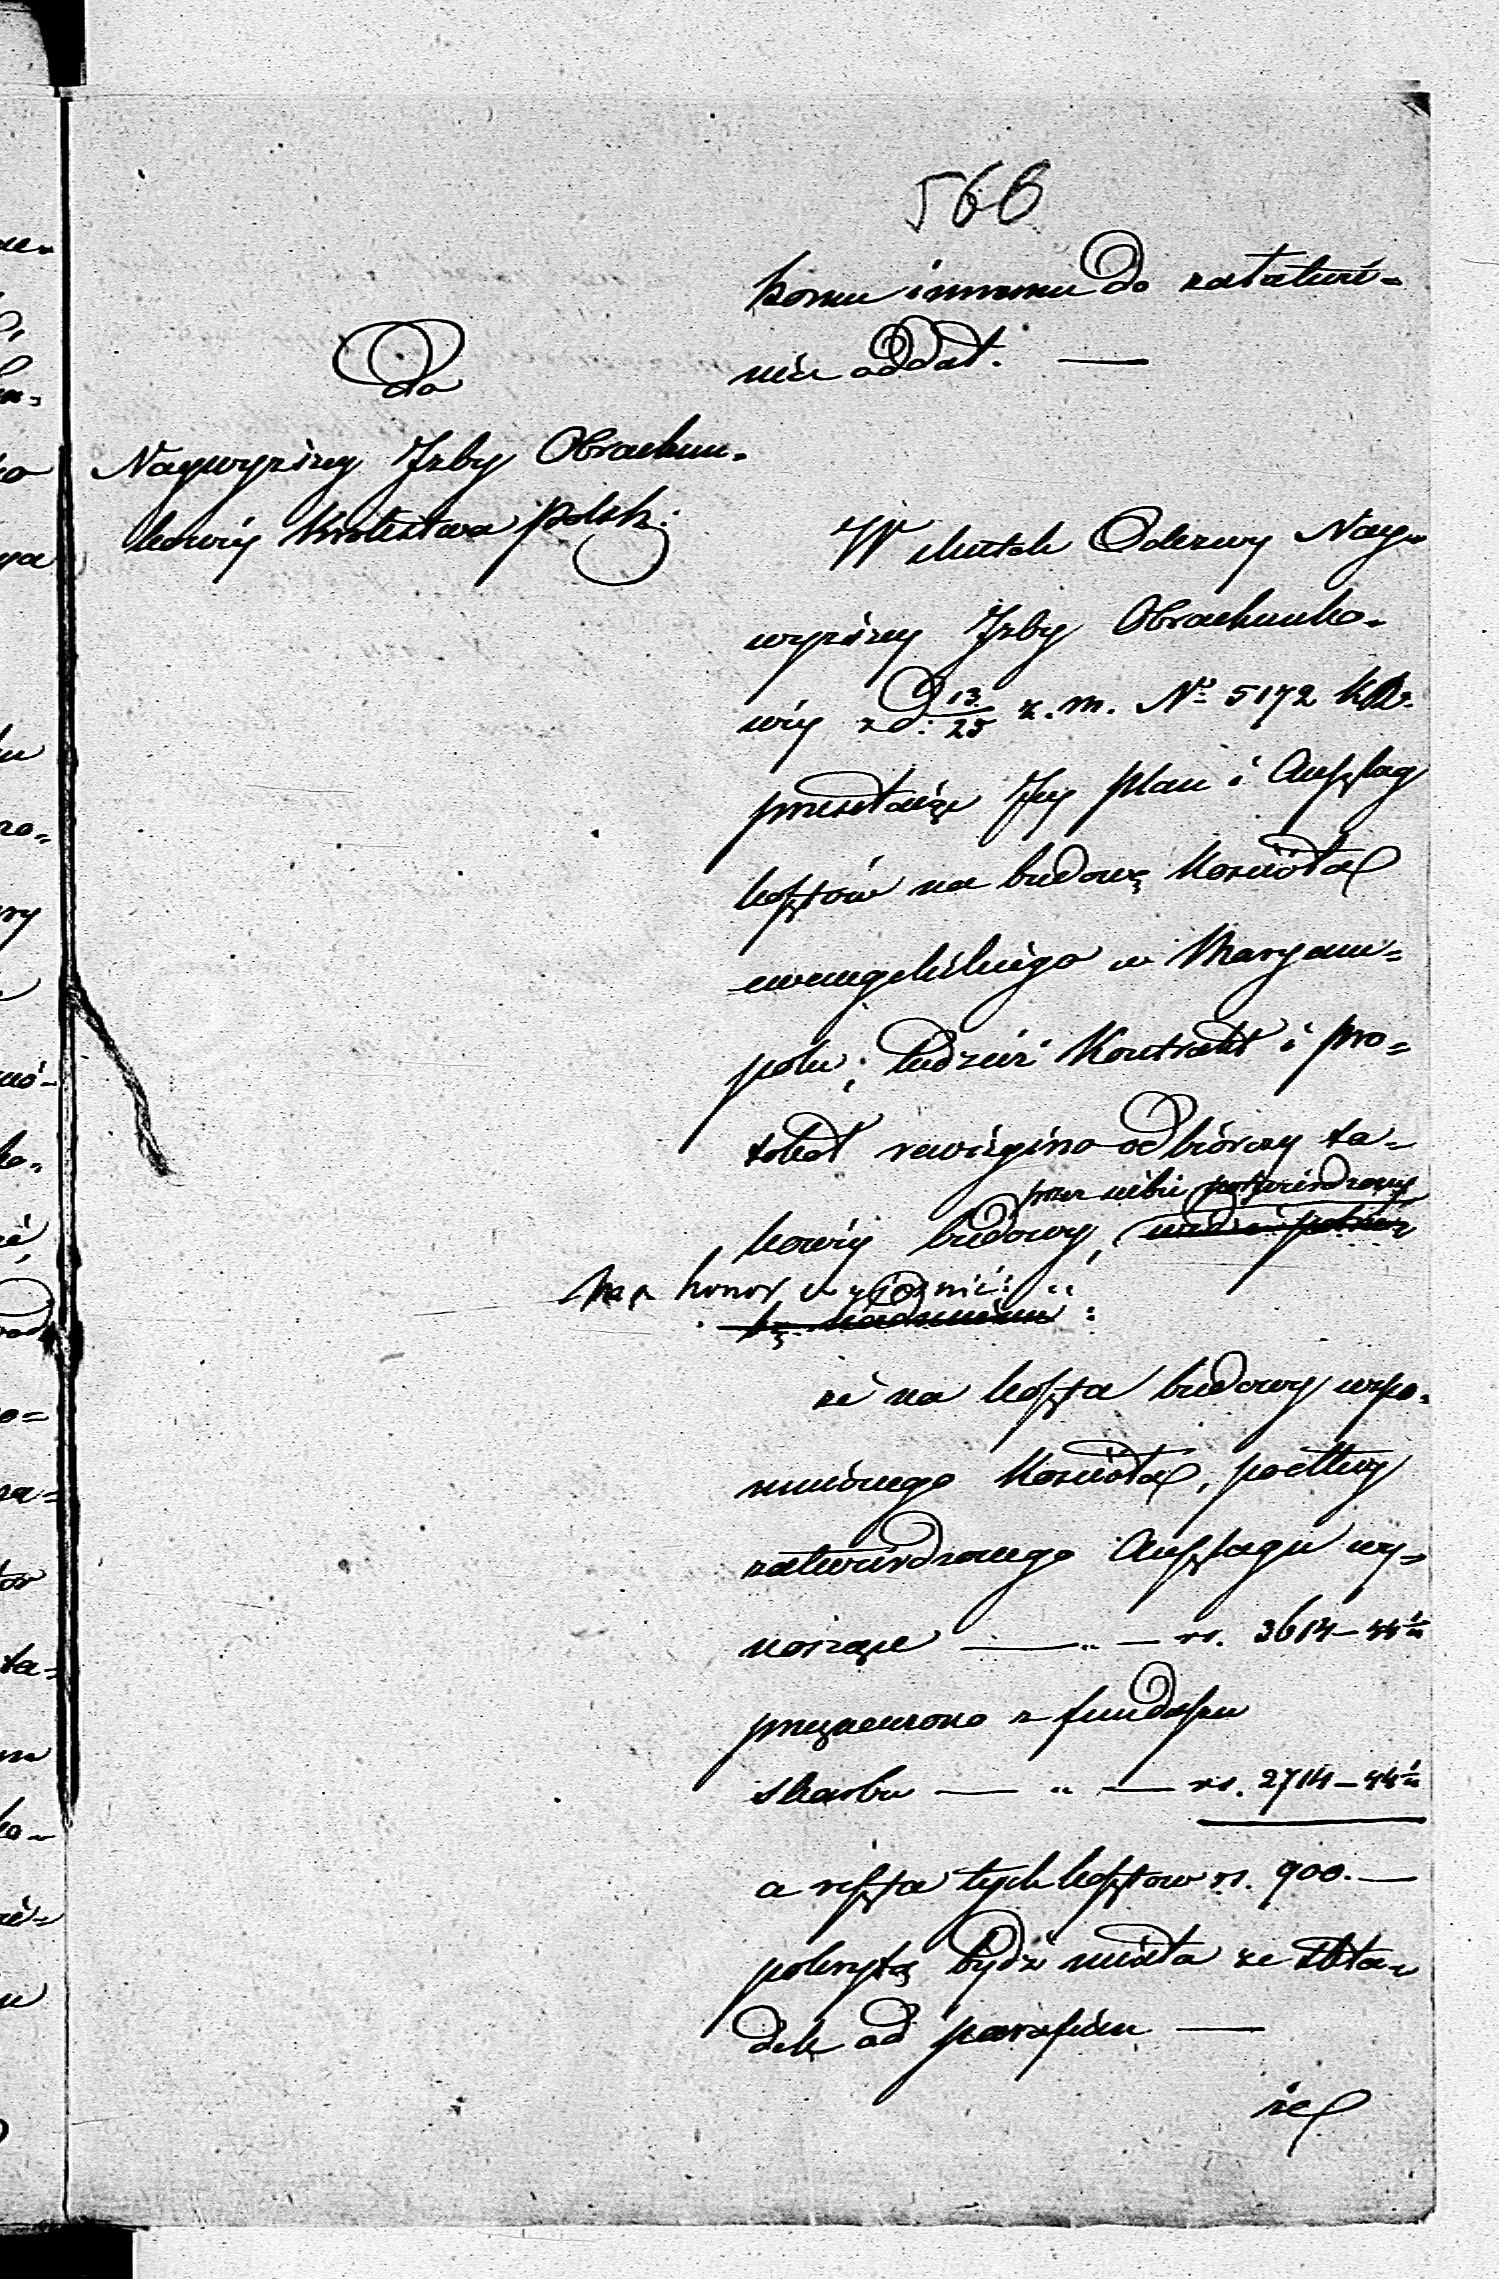 566
komu innemu do załatwie-
nia oddał. —
Do
Naywyższey Izby Obrachun-
kowéy Królestwa Polsk:
W skutek Odezwy Nay-
wyższey Izby Obrachunko-
wéy z d: 13/25 z. m. Nº 5172
przesyłając Jey Plan i Anszlag
kosztów na budowę Kościoła
ewangelickiego w Maryam-
polu; tudzież Kontrakt i pro-
tokół rewizyino-odbiórczy ta-
przez siebie potwierdzony
kowéy budowy,
Ma honor
że na koszta budowy wspo-
mnionego Kościoła, podług
zatwierdzonego Anszlagu wy-
noszące — „ — rs. 3614 – 44½
przeznaczono z funduszu
skarbu — „ — rs. 2714 – 44½
a reszta tych kosztow rs. 900. —
pokrytą bydź miała ze skła-
dek od parafian —
że